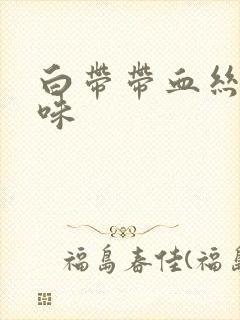 白帶帶血絲
味
福島春佳(福島